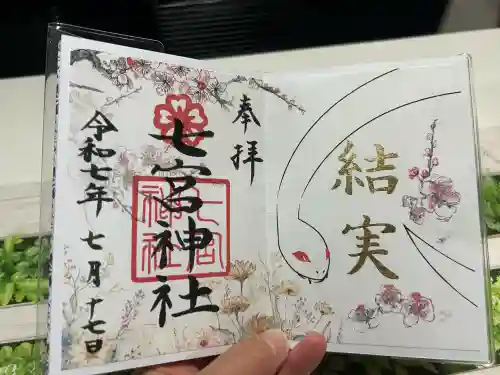 奉拝
七宮神社
七宮神社
令和七年 七月 十七日
結実